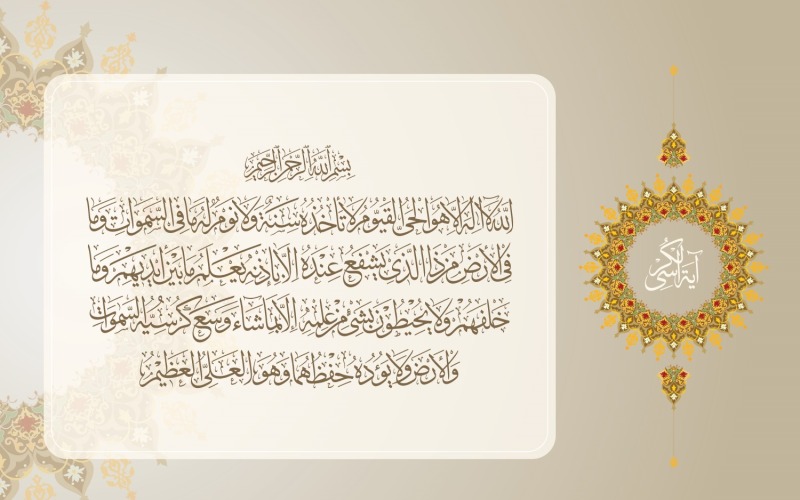 بسم الله الرحمن الرحيم
الله لا اله الا هو الحي القيوم لا تأخذه سنة ولا نوم له ما في السموات وما
في الأرض من ذا الذي يشفع عنده إلا بإذنه يعلم ما بين أيديهم وما
خلفهم ولا يحيطون بشيء من علمه إلا بما شاء وسع كرسيه السموات
والأرض ولا يؤده حفظهما وهو العلي العظيم
آية الكرسي